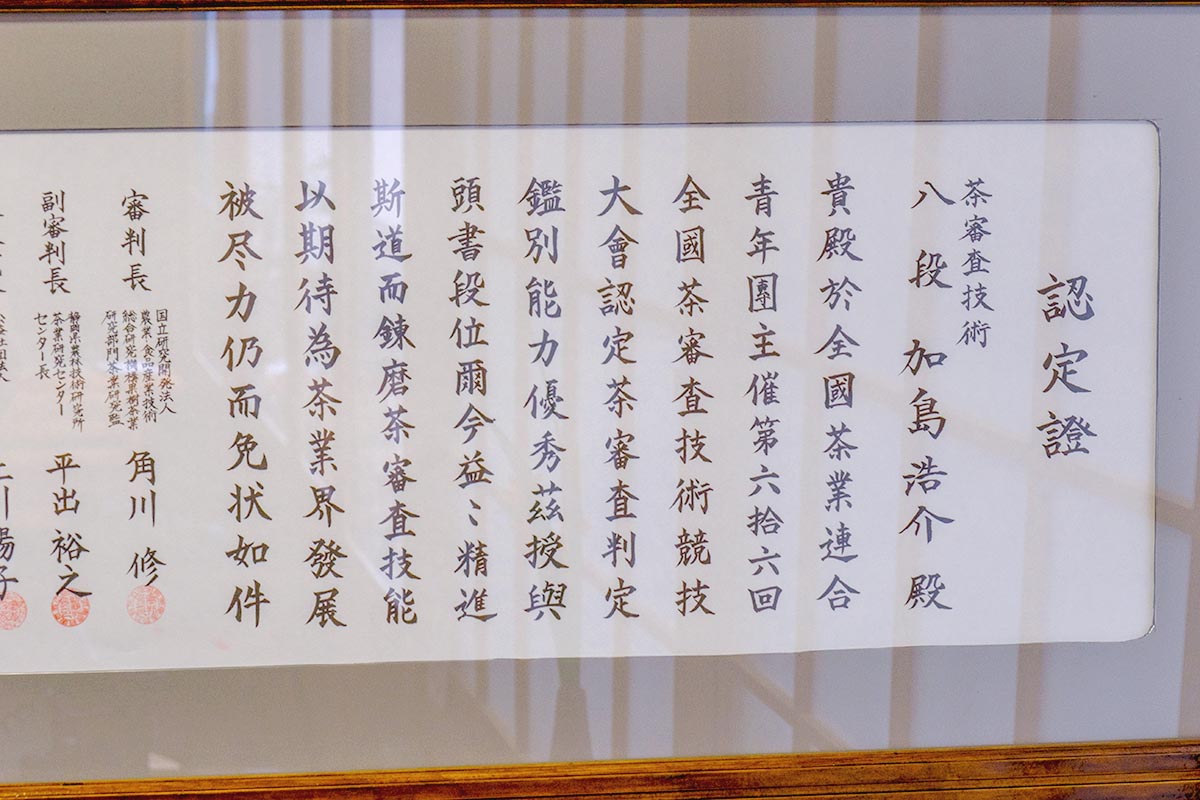 認定證
茶審査技術
八段 加島浩介 殿
貴殿於全國茶業連合
青年團主催第六拾六回
全國茶審査技術競技
大會認定茶審査判定
鑑別能力優秀茲授與
頭書段位爾今益〻精進
斯道而錬磨茶審査技能
以期待為茶業界發展
被尽力仍而免状如件
審判長
国立研究開発法人
農業・食品産業技術
総合研究機構果樹茶業
研究部門茶業研究監
角川 修
副審判長
静岡県農林技術研究所
茶業研究センター
センター長
平出 裕之